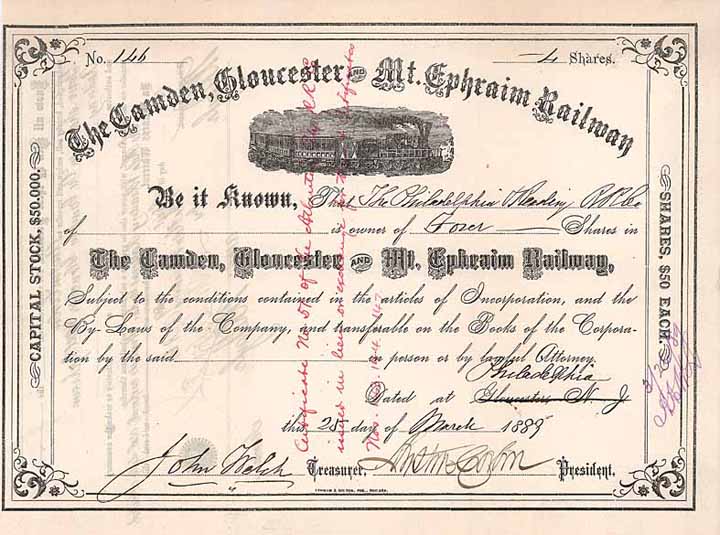 No. 146
4 Shares.
The Camden, Gloucester AND Mt. Ephraim Railway
Be it Known, That The Philadelphia & Reading R.R. Co
of is owner of Four Shares in
The Camden, Gloucester AND Mt. Ephraim Railway,
Subject to the conditions contained in the articles of Incorporation, and the
By-Laws of the Company, and transferable on the Books of the Corpora-
tion by the said in person or by lawful Attorney.
Philadelphia
Dated at Gloucester N. J.
this 25 day of March 1889
John Welch Treasurer. President.
CAPITAL STOCK, $50.000.
SHARES, $50 EACH.
Certificate No. 51 of the Atlantic City R.R. Co
issued in lieu or exchange for Certificates